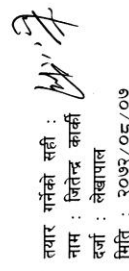 तयार गर्नेको सही :
नाम : जितेन्द्र कार्की
दर्जा : लेखापाल
मिति : २०७२/०८/०७